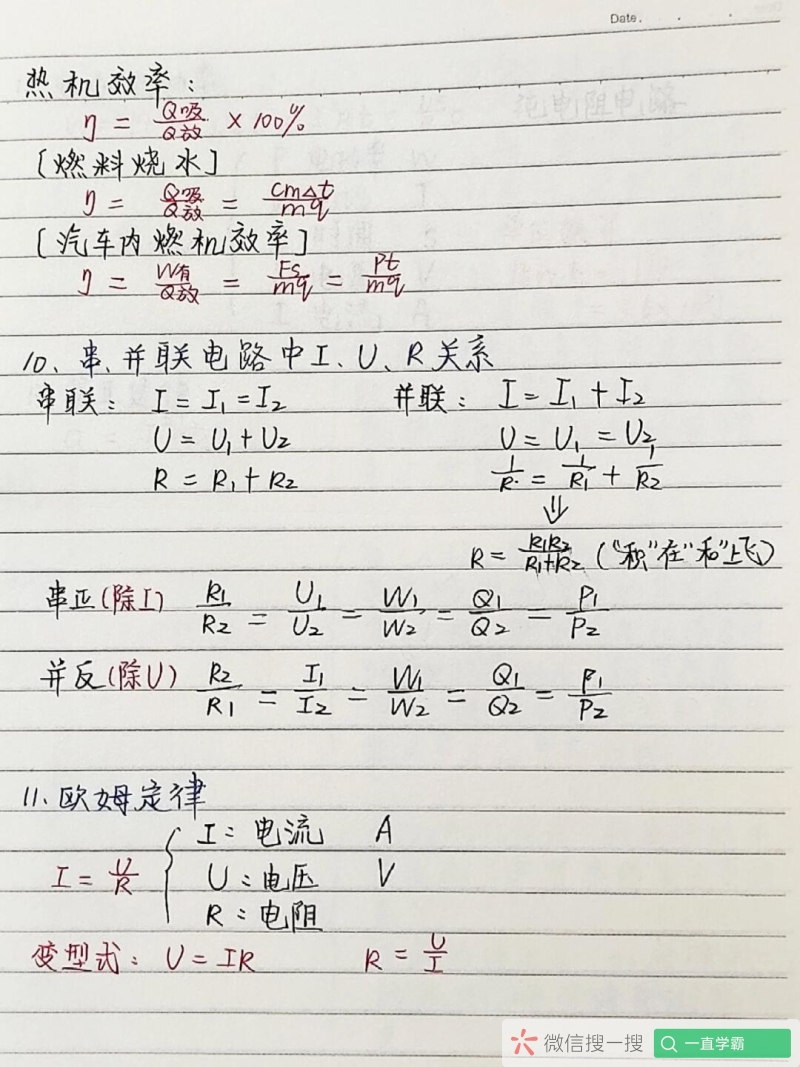 Date.
热机效率：
η = Q吸/Q放 × 100%
[燃料烧水]
η = Q吸/Q放 = cm△t/mq
[汽车内燃机效率]
η = W有/Q放 = Fs/mq = Pt/mq
10、串、并联电路中I、U、R关系
串联： I = I₁ = I₂ 并联： I = I₁ + I₂
U = U₁ + U₂ U = U₁ = U₂
R = R₁ + R₂ 1/R = 1/R₁ + 1/R₂
⇓
R = R₁R₂/R₁+R₂ ("积"在"和"上飞)
串正(除I) R₁/R₂ = U₁/U₂ = W₁/W₂ = Q₁/Q₂ = P₁/P₂
并反(除U) R₂/R₁ = I₁/I₂ = W₁/W₂ = Q₁/Q₂ = P₁/P₂
11、欧姆定律
I：电流 A
I = U/R { U：电压 V
R：电阻
变型式： U = IR R = U/I
微信搜一搜 一直学霸